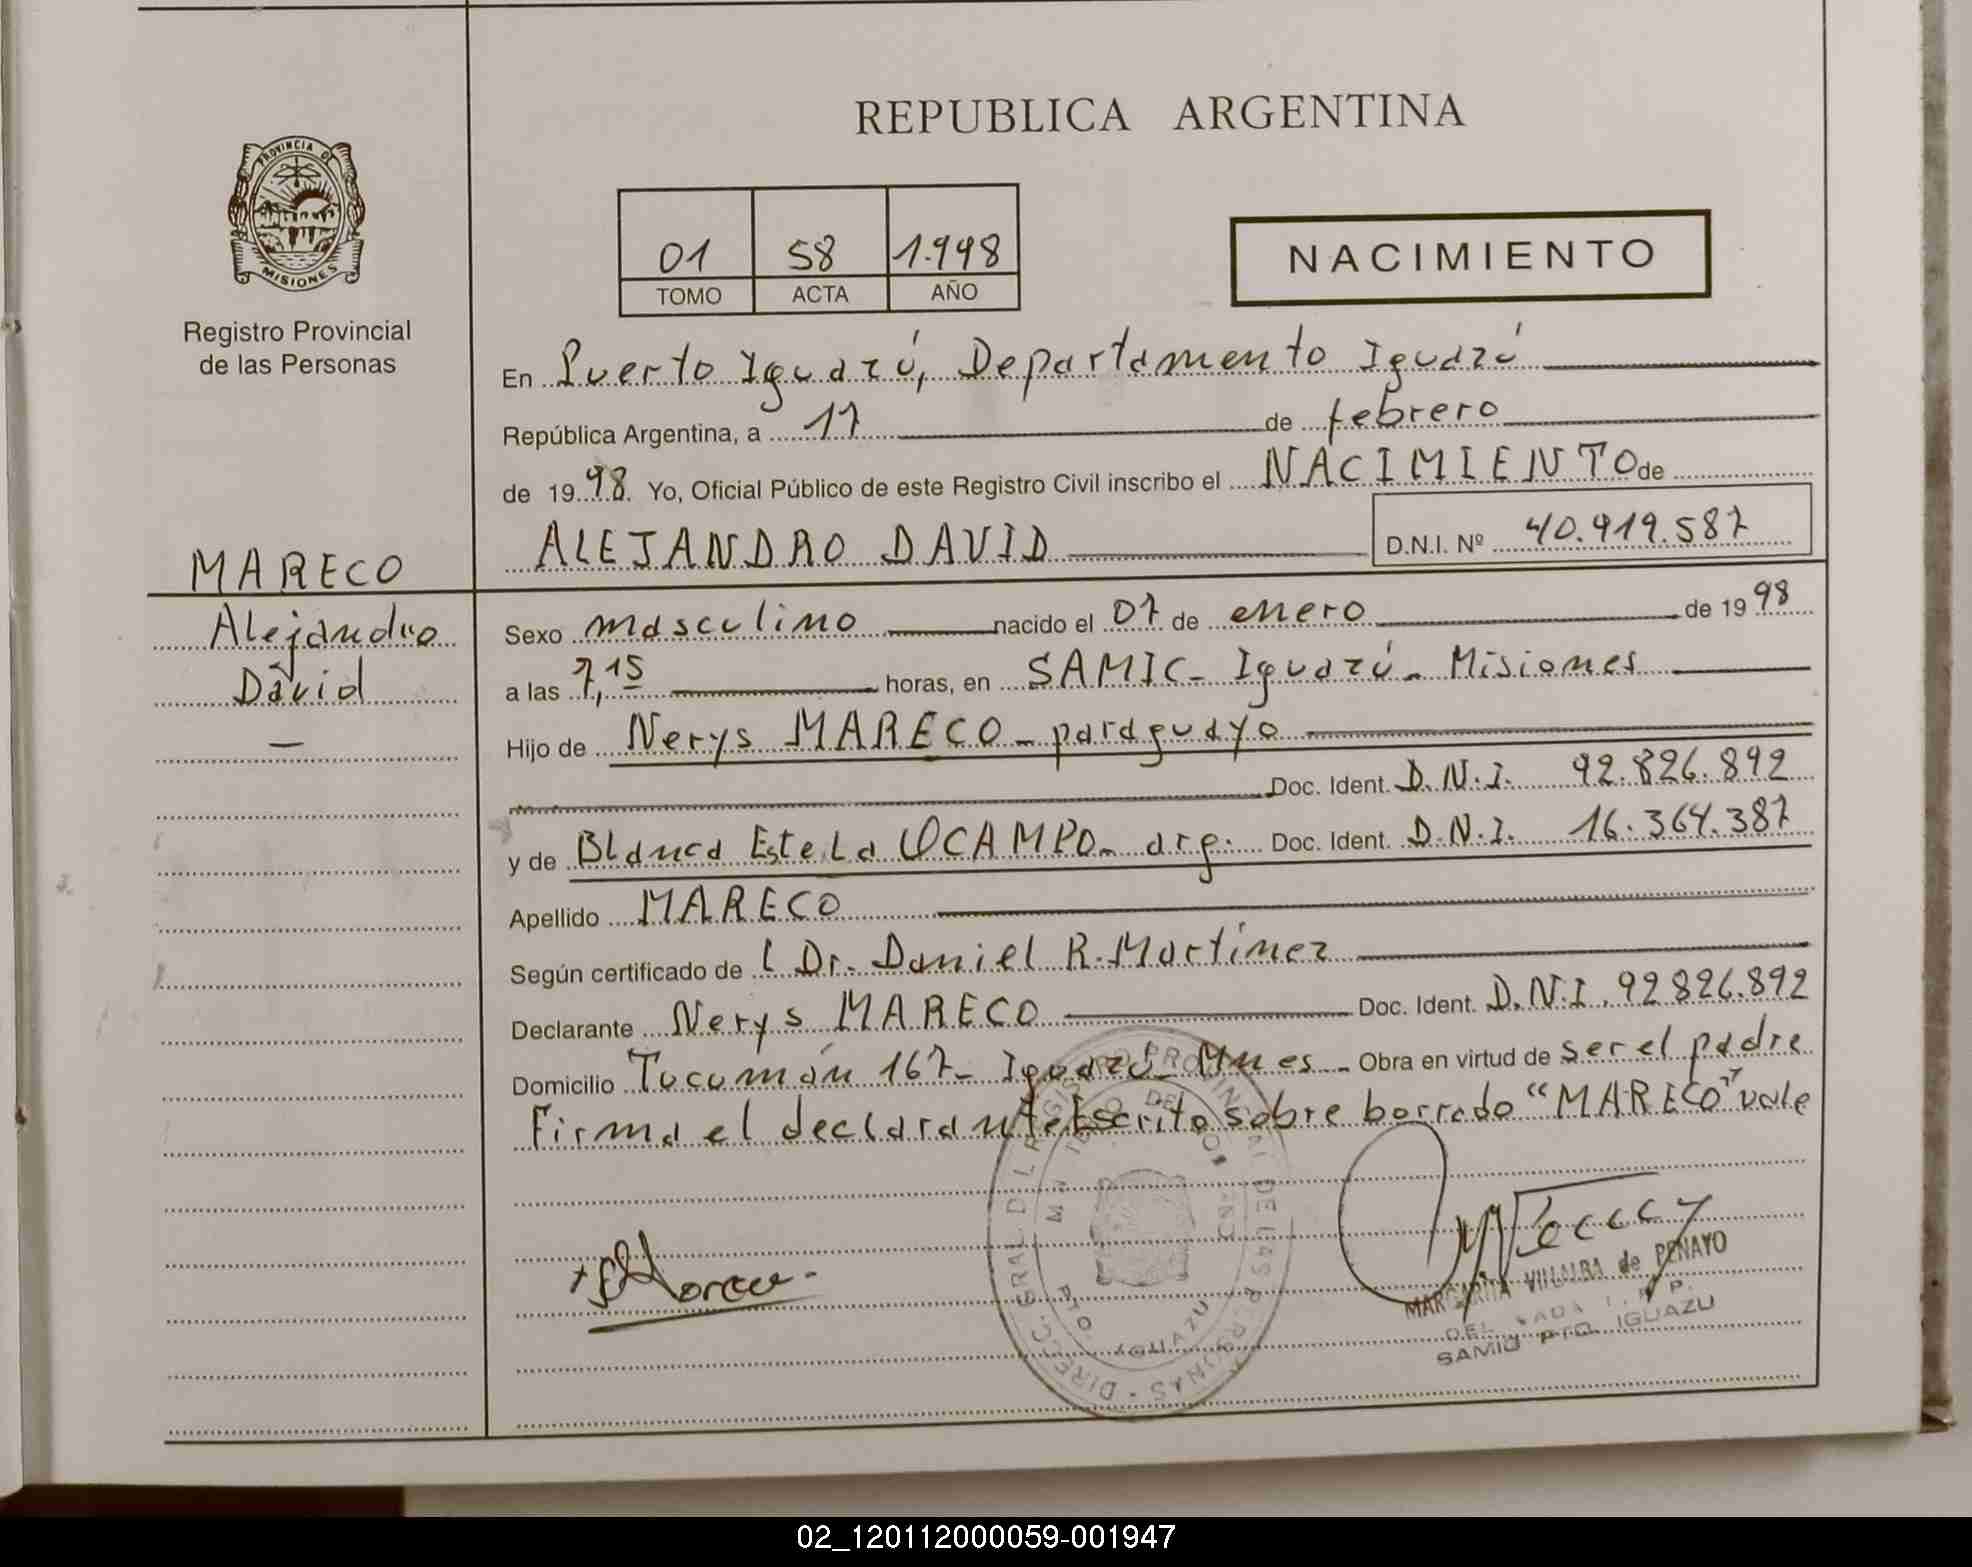 REPUBLICA ARGENTINA
PROVINCIA DE
MISIONES
Registro Provincial
de las Personas
01 58 1.998
TOMO ACTA AÑO
NACIMIENTO
En Puerto Iguazú, Departamento Iguazú
República Argentina, a 17 de febrero
de 1998. Yo, Oficial Público de este Registro Civil inscribo el NACIMIENTO de
ALEJANDRO DAVID D.N.I. Nº 40.919.587
MARECO
Alejandro
David
Sexo masculino nacido el 07 de enero de 1998
a las 7,15 horas, en SAMIC - Iguazú - Misiones
Hijo de Nerys MARECO - paraguayo
Doc. Ident. D.N.I. 92.826.892
y de Blanca Estela OCAMPO - arg. Doc. Ident. D.N.I. 16.364.387
Apellido MARECO
Según certificado de Dr. Daniel R. Martínez
Declarante Nerys MARECO Doc. Ident. D.N.I. 92826.892
Domicilio Tucumán 167 - Iguazú - Mnes - Obra en virtud de ser el padre
Firma el declarante. Escrito sobre borrado "MARECO" vale
MARGARITA VILLALBA de PENAYO
SAMIC PTO. IGUAZU
02_120112000059-001947